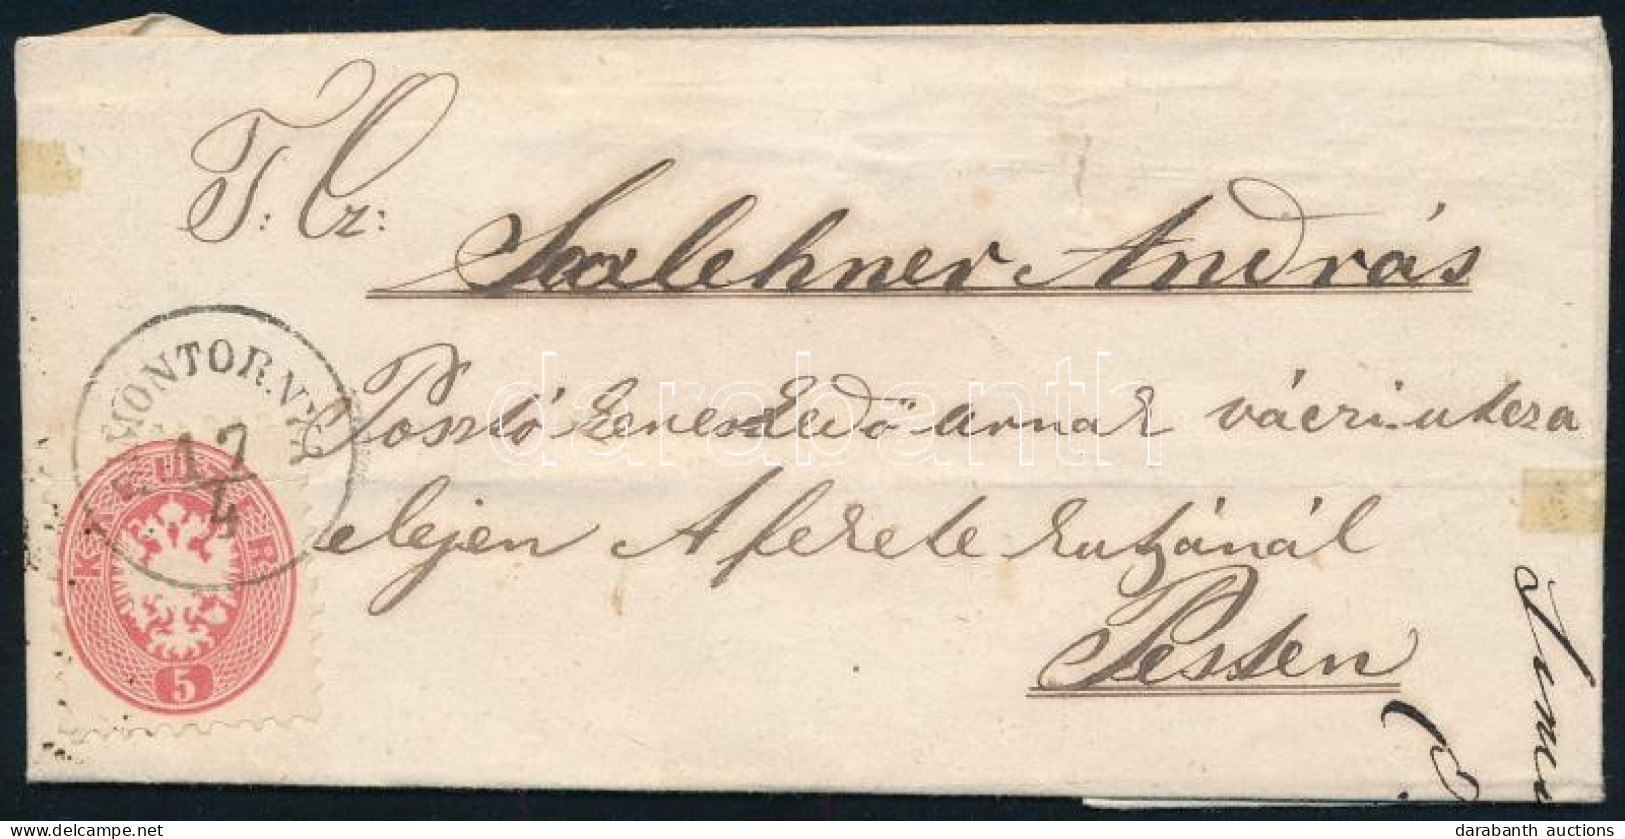 T: Cz:
Saxlehner András
Posztó kereskedő úrnak váczi utcza
elejen A fekete kutyánál
Pesten
MONTOR.VÁR
17
4
KR
5
darabanth
darabanth auctions